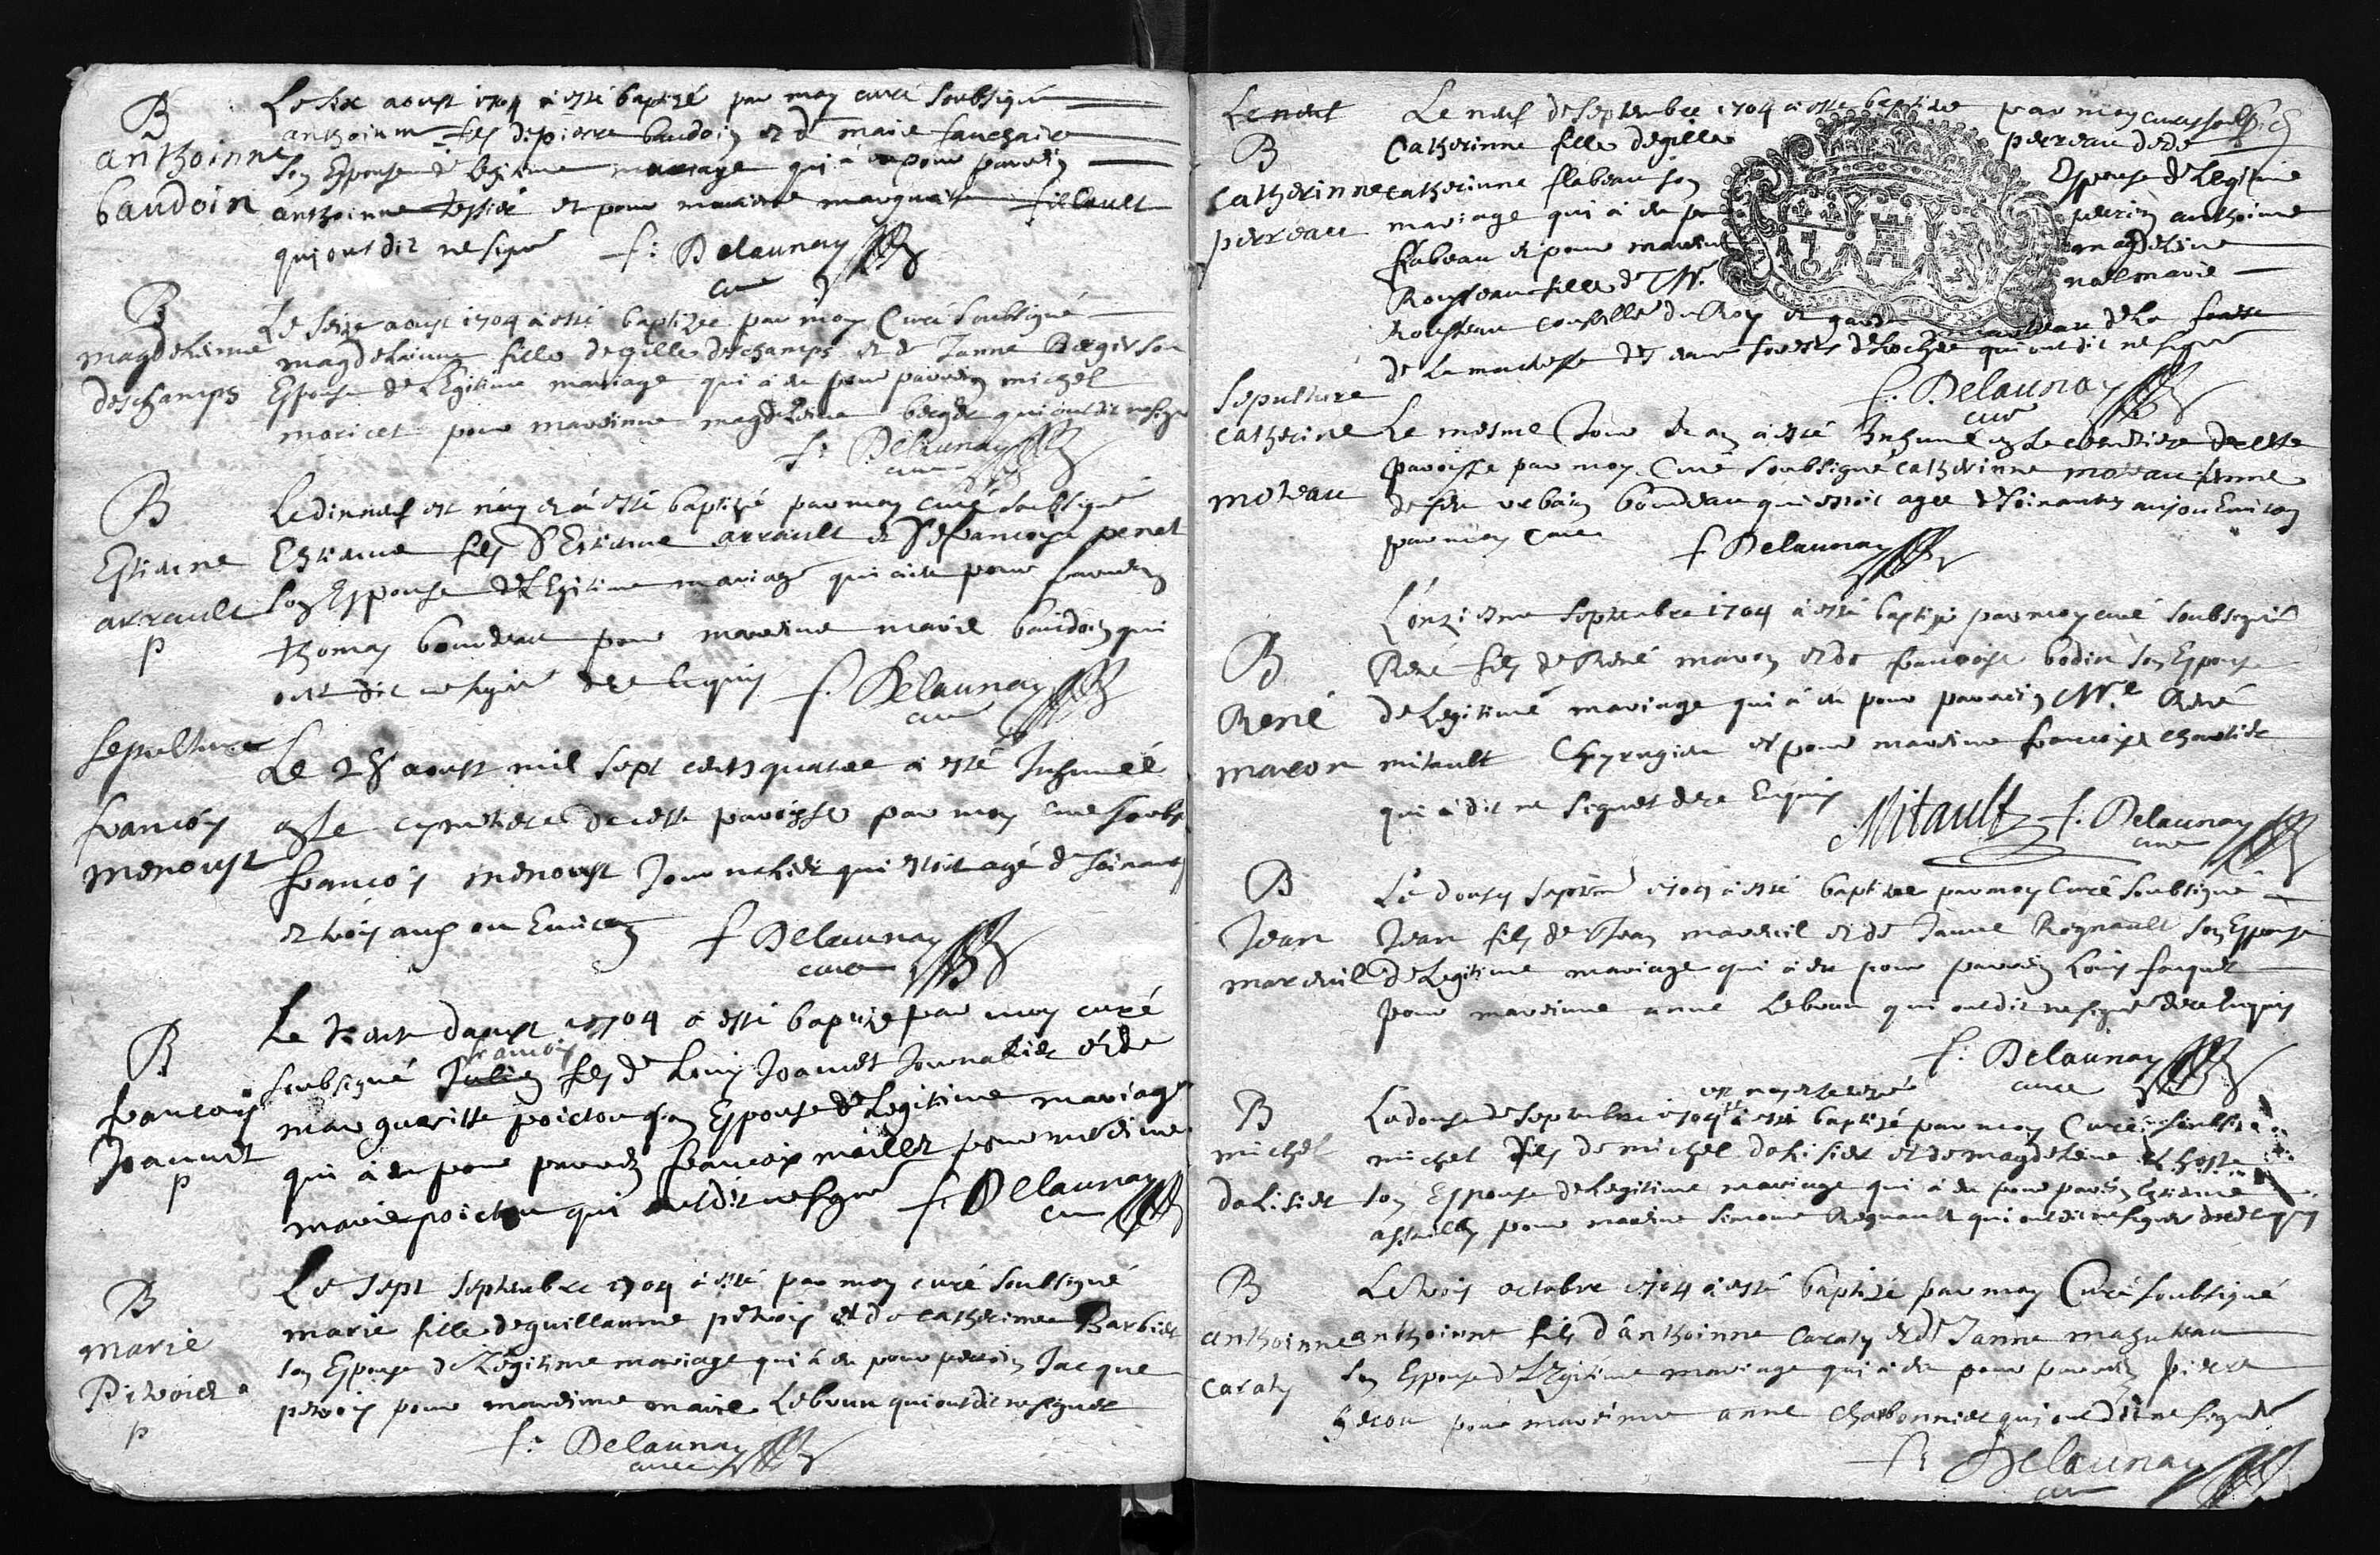 B
anthoinne
baudoin
Le six aoust 1704 a esté baptizé par moy curé soubsigné
anthoinne fils de pierre baudoin et de marie fauchaire
son Espouse de legitime mariage qui a eu pour parrein
anthoinne tessier et pour mareinne marguerite fillault
qui ont dit ne signé f: Delaunay
cure
B
magdeleinne
deschamps
Le seize aoust 1704 a esté baptizée par moy Curé soubsigné
magdelainne fille de gille deschamps et de Janne Bergier son
Espouse de Legitime mariage qui a eu pour parrein michel
moricet pour mareinne magdeleine berger qui ont dit ne signé
f: Delaunay
cure
B
Estienne
arrault
p
Le dinneuf est néy et a esté baptizé par moy curé soubsigné
Estienne fils d'Estienne arrault et de francoise penet
son Espouse de Legitime mariage qui a eu pour parrein
thomas bourdeau pour mareinne marie baudoin qui
ont dit ne signé de ce enquis f. Delaunay
cure
sepulture
francois
menoust
Le 28 aoust mil sept cents quatre a esté Inhumé
en le cymetiere de cette paroisse par moy curé soubs
francois menoust Journalier qui estoit agé de soixante
et trois ans ou Environ f Delaunay
cure
B
francois
Joannet
p
Le trente d'aoust 1704 a esté baptizé par moy curé
francois
soubsigné Julien fils de Louis Joannet Journalier et de
margueritte poictou son Espouse de Legitime mariage
qui a eu pour parrein francois maillet pour mareinne
marie poictou qui ont dit ne signé f. Delaunay
cure
B
marie
Pitrois
p
Le sept septembre 1704 a esté par moy curé soubsigné
marie fille de guillaume pitrois et de catherinne Barbier
son Espouse de Legitime mariage qui a eu pour parrein Jacque
pitrois pour mareinne marie Lebrun qui ont dit ne signer
f: Delaunay
cure
Le neuf
B
catherinne
perreau
Le neuf de septembre 1704 a esté baptizee par moy curé soubsigné
Catherinne fille de gille perreau et de
catherinne flabeau son Espouse de Legitime
mariage qui a eu pour parrein anthoinne
flabeau et pour mareinne magdeleine
Rousseau fille de Mr. noel marie
Rousseau conseiller du Roy et garde marteau de La
de La maitrise des eaux forests de Loches qui ont dit ne signé
f. Delaunay
cure
sepulture
catherine
moreau
Le mesme Jour et an a esté Inhumé en Le cemetiere de cette
paroisse par moy Curé soubsigné catherinne moreau femme
de feu urbain bourdeau qui estoit agee de soixante ans ou Environ
par moy Curé f Delaunay
B
René
maron
L'onziesme septembre 1704 a esté baptizé par moy curé soubsigné
René fils de René maron et de francoise bodin son Espouse
de Legitime mariage qui a eu pour parrein Mre René
mitault Chyrugien et pour mareinne francoise
qui a dit ne signer de ce Enquis Mitault f. Delaunay
cure
B
Jean
mareuil
Le douse septembre 1704 a esté baptizee par moy Curé soubsigné
Jean fils de Jean mareuil et de Janne Regnault son Espouse
de Legitime mariage qui a eu pour parrein Louis
pour mareinne anne Lebrun qui ont dit ne signé de ce Enquis
f. Delaunay
cure
B
michel
dalisier
Le douse de septembre 1704 a esté baptizé par moy Curé soubsigné
michel fils de michel dalisier et de magdeleine
son Espouse de Legitime mariage qui a eu pour parrein Estienne
pour mareine simonne Regnault qui ont dit ne signer de ce enquis
B
anthoinne
caraty
Le trois octobre 1704 a esté baptizé par moy Curé soubsigné
anthoinne fils d'anthoinne caraty et de Janne mazuteau
son Espouse de Legitime mariage qui a eu pour parrein pierre
heron pour mareinne anne charbonnier qui ont dit ne signer
f: Delaunay
cure